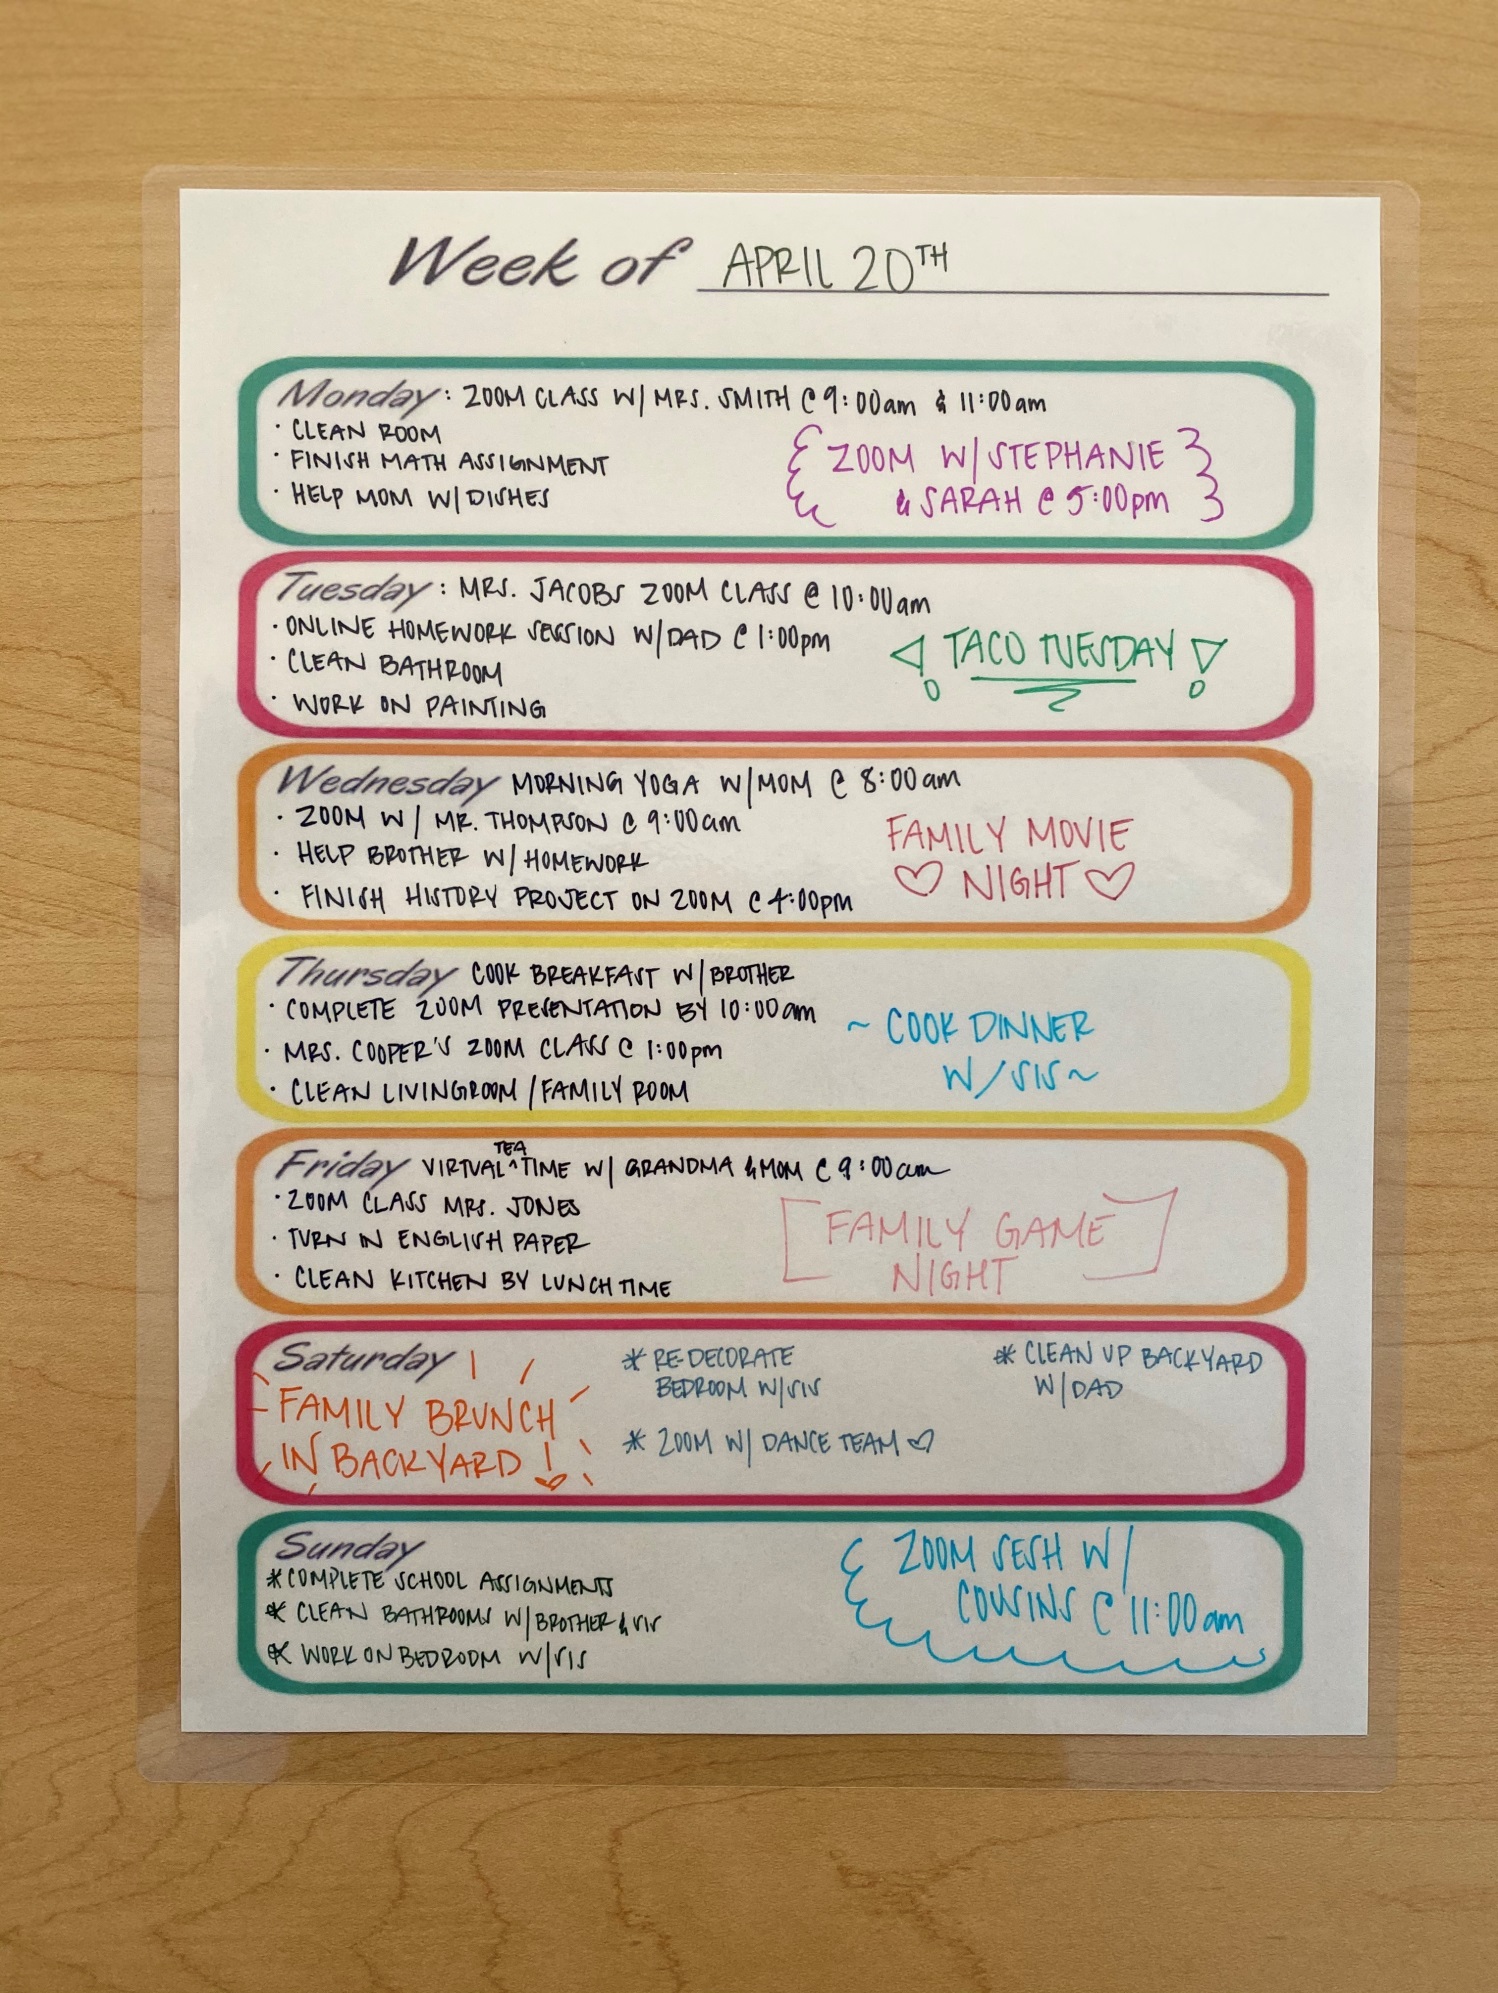 Week of APRIL 20TH
Monday: ZOOM CLASS W/ MRS. SMITH @ 9:00am & 11:00am
· CLEAN ROOM
· FINISH MATH ASSIGNMENT
· HELP MOM W/ DISHES
ZOOM W/ STEPHANIE
& SARAH @ 5:00pm
Tuesday: MRS. JACOBS ZOOM CLASS @ 10:00am
· ONLINE HOMEWORK SESSION W/ DAD @ 1:00pm
· CLEAN BATHROOM
· WORK ON PAINTING
! TACO TUESDAY !
Wednesday MORNING YOGA W/ MOM @ 8:00am
· ZOOM W/ MR. THOMPSON @ 9:00am
· HELP BROTHER W/ HOMEWORK
· FINISH HISTORY PROJECT ON ZOOM @ 4:00pm
FAMILY MOVIE
♡ NIGHT ♡
Thursday COOK BREAKFAST W/ BROTHER
· COMPLETE ZOOM PRESENTATION BY 10:00am
· MRS. COOPER'S ZOOM CLASS @ 1:00pm
· CLEAN LIVINGROOM / FAMILY ROOM
~ COOK DINNER
W/ SIS ~
Friday VIRTUAL TEA TIME W/ GRANDMA & MOM @ 9:00am
· ZOOM CLASS MRS. JONES
· TURN IN ENGLISH PAPER
· CLEAN KITCHEN BY LUNCHTIME
[FAMILY GAME
NIGHT]
Saturday
FAMILY BRUNCH
IN BACKYARD!
* RE-DECORATE
BEDROOM W/ SIS
* ZOOM W/ DANCE TEAM ♡
* CLEAN UP BACKYARD
W/ DAD
Sunday
* COMPLETE SCHOOL ASSIGNMENTS
* CLEAN BATHROOMS W/ BROTHER & SIS
* WORK ON BEDROOM W/ SIS
ZOOM SESH W/
COUSINS @ 11:00am